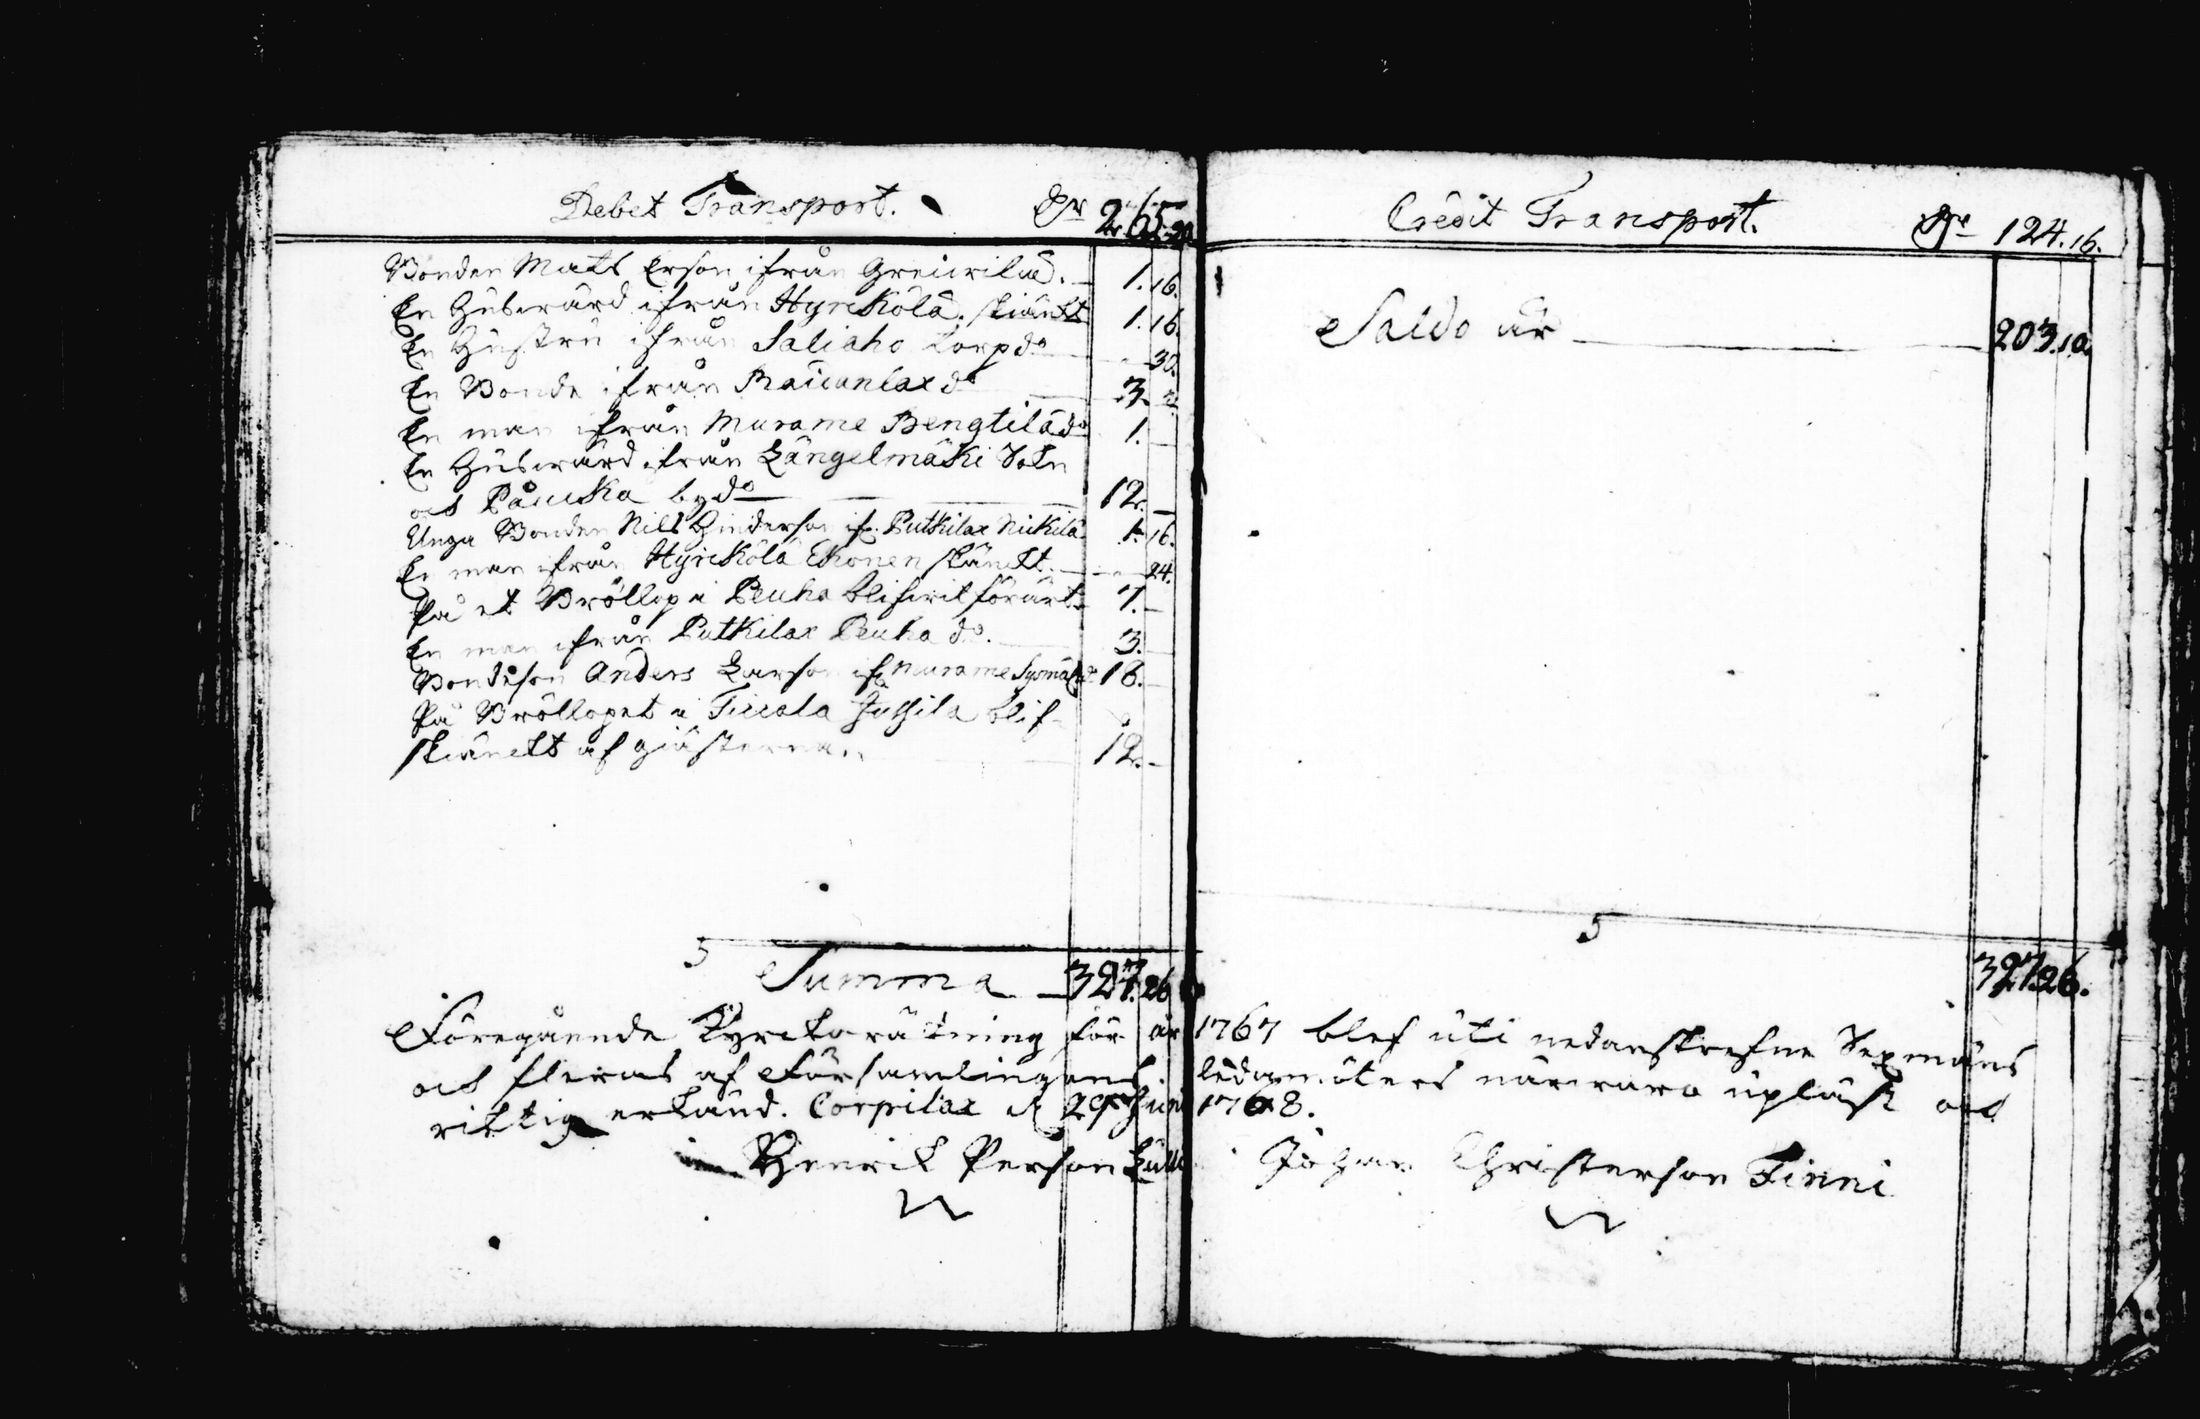 Debet Transport. Dr 265.20
Bonden Mats Erson ifrån Greivilä. 1.16.
En Husvärd ifrån Hyrckölä. skiänkt 1.16.
En Hustru ifrån Saliaho Torp do 30.
En Bonde ifrån do 3. 2
En man ifrån Murame Bengtilä do 1.
En Husvärd ifrån Längelmäki Sokn
och by do 12.
Unga Bonden Nils ifr. Putkilax Nickilä 1.16.
En man ifrån Hyrckölä Ekonen skänkt. 24.
På et Bröllop i Peuha blifwit förärt 7.
En man ifrån Putkilax Peuha do. 3.
Bondeson Anders Larson ifr. Murame do 18.
På Bröllopet i Jussila blif-
skiänckt af giästerna. 12.
Summa 327.26
Credit Transport. Dr 124.16.
Saldo är 203.10
327.26.
Föregående Kyrckoräkning för år 1767 blef uti nedanskrefne Sexmäns
och fleras af Församlingens ledamöters närvaro upläst och
riktig erkänd. Corpilax d 29 Juni 1768.
Henrik Person Johan Christerson Finni